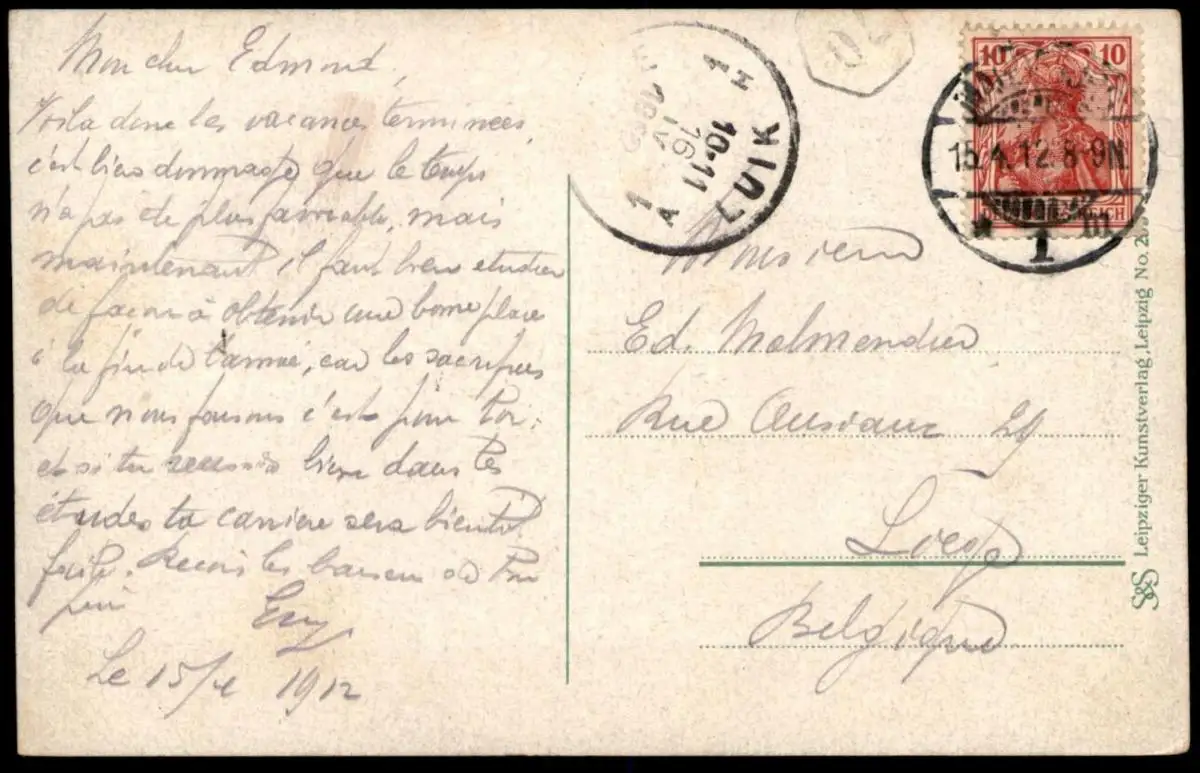 Mon cher Edmond,
Voila donc les vacances terminées,
c'est bien dommage que le temps
n'a pas été plus favorable, mais
maintenant il faut bien etudier
de facon à obtenir une bonne place
à la fin de l'année, car les sacrifices
que nous faisons c'est pour toi,
et si tu reussis bien dans tes
études ta carriere sera bientot
facile. Recois les baisers de ton
Le 15/4 1912
1 H
LUIK
10-11
16
IV
1912
1 A
10 10
15.4.12.8-9N
DEUTSCHES REICH
1
Monsieur
Ed. Malmendier
Rue 29
Liege
Belgique
S&S Leipziger Kunstverlag, Leipzig No. 2